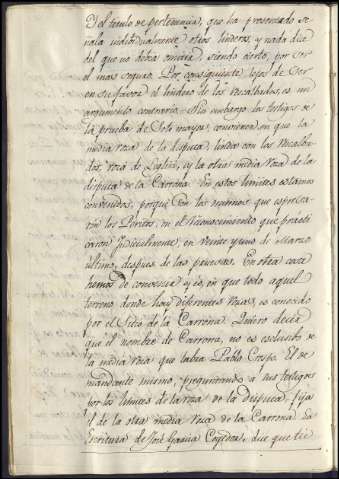 Y el título de pertenencia, que ha presentado se
ñala individualmente otros linderos, y nada dice
del que no debia omitir, siendo cierto, por ser
el mas seguro. Por consiguiente, lejos de ser
en su favor el lindero de los Recalbados, es un
argumento contrario. Sin embargo los testigos de
la prueba de Soto mayor, convienen en que la
media roza de la disputa, linda con los Recalba
dos, roza de y la otra media roza de la
disputa de la Carrona. En estos limites estamos
convenidos, porque son los mismos que expresa
ron los Peritos, en el reconocimiento que practi
caron judicialmente, en veinte y uno de Marzo
ultimo, despues de las pruebas. En otra cosa
hemos de convenir y es, en que todo aquel
terreno donde hay diferentes rozas, es conocido
por el Sitio de la Carrona. Quiero decir
que el nombre de Carrona, no es exclusivo de
la media roza que labra Pablo Crespo. El de
mandante mismo, preguntando a sus testigos
por los limites de la roza de la disputa, fija
el de la otra media roza de la Carrona. La
Escritura de José Garcia dice que tie